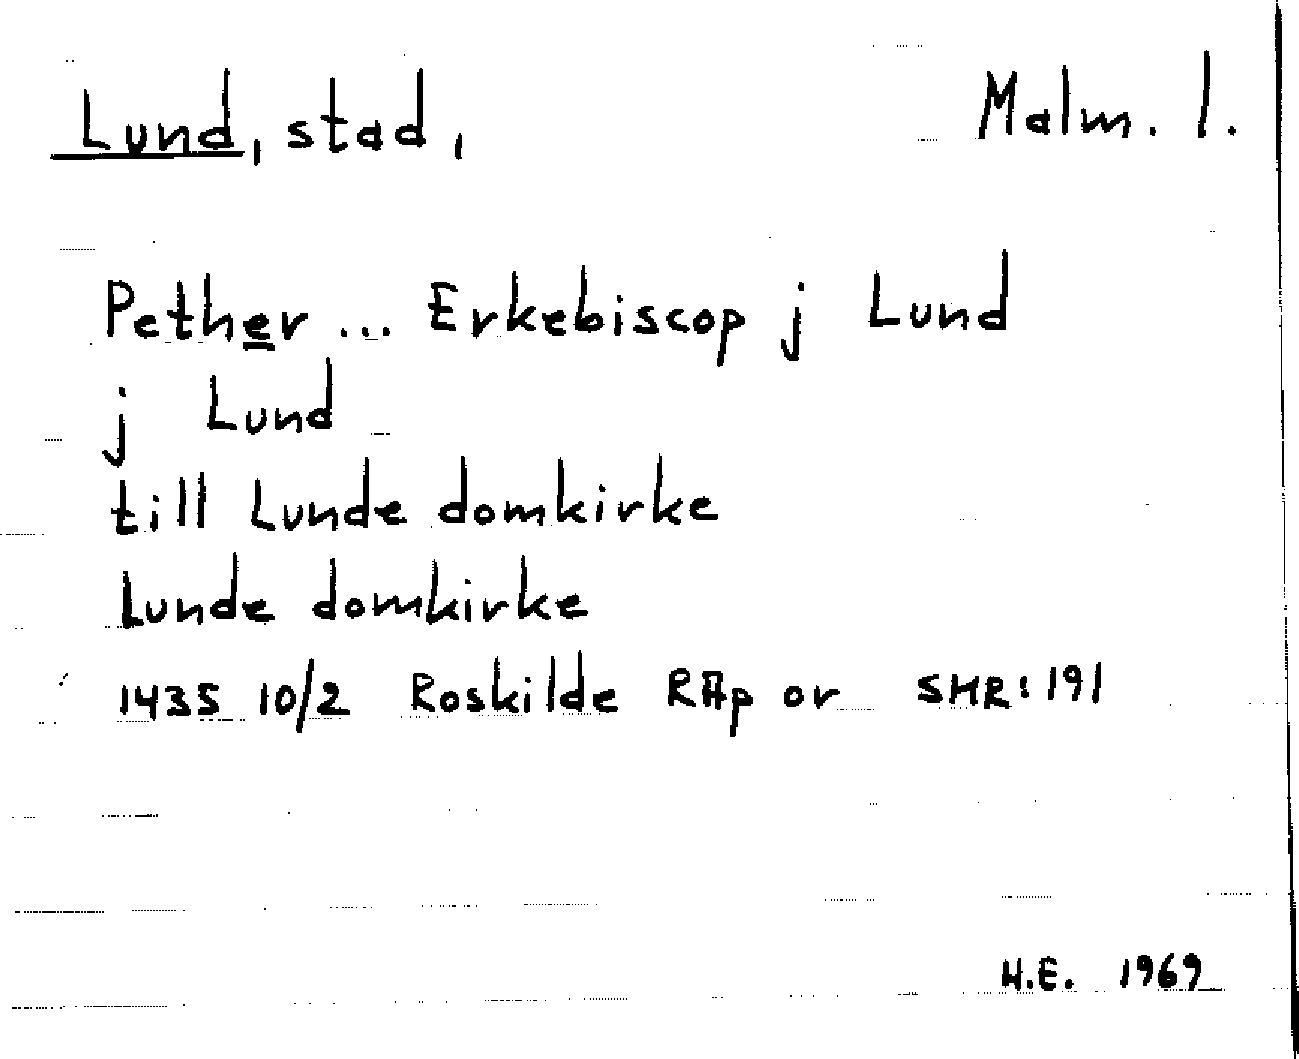 Lund, stad, Malm. l.
Pether ... Erkebiscop j Lund
j Lund
till Lunde domkirke
Lunde domkirke
1435 10/2 Roskilde RAp or SMR: 191
H.E. 1969